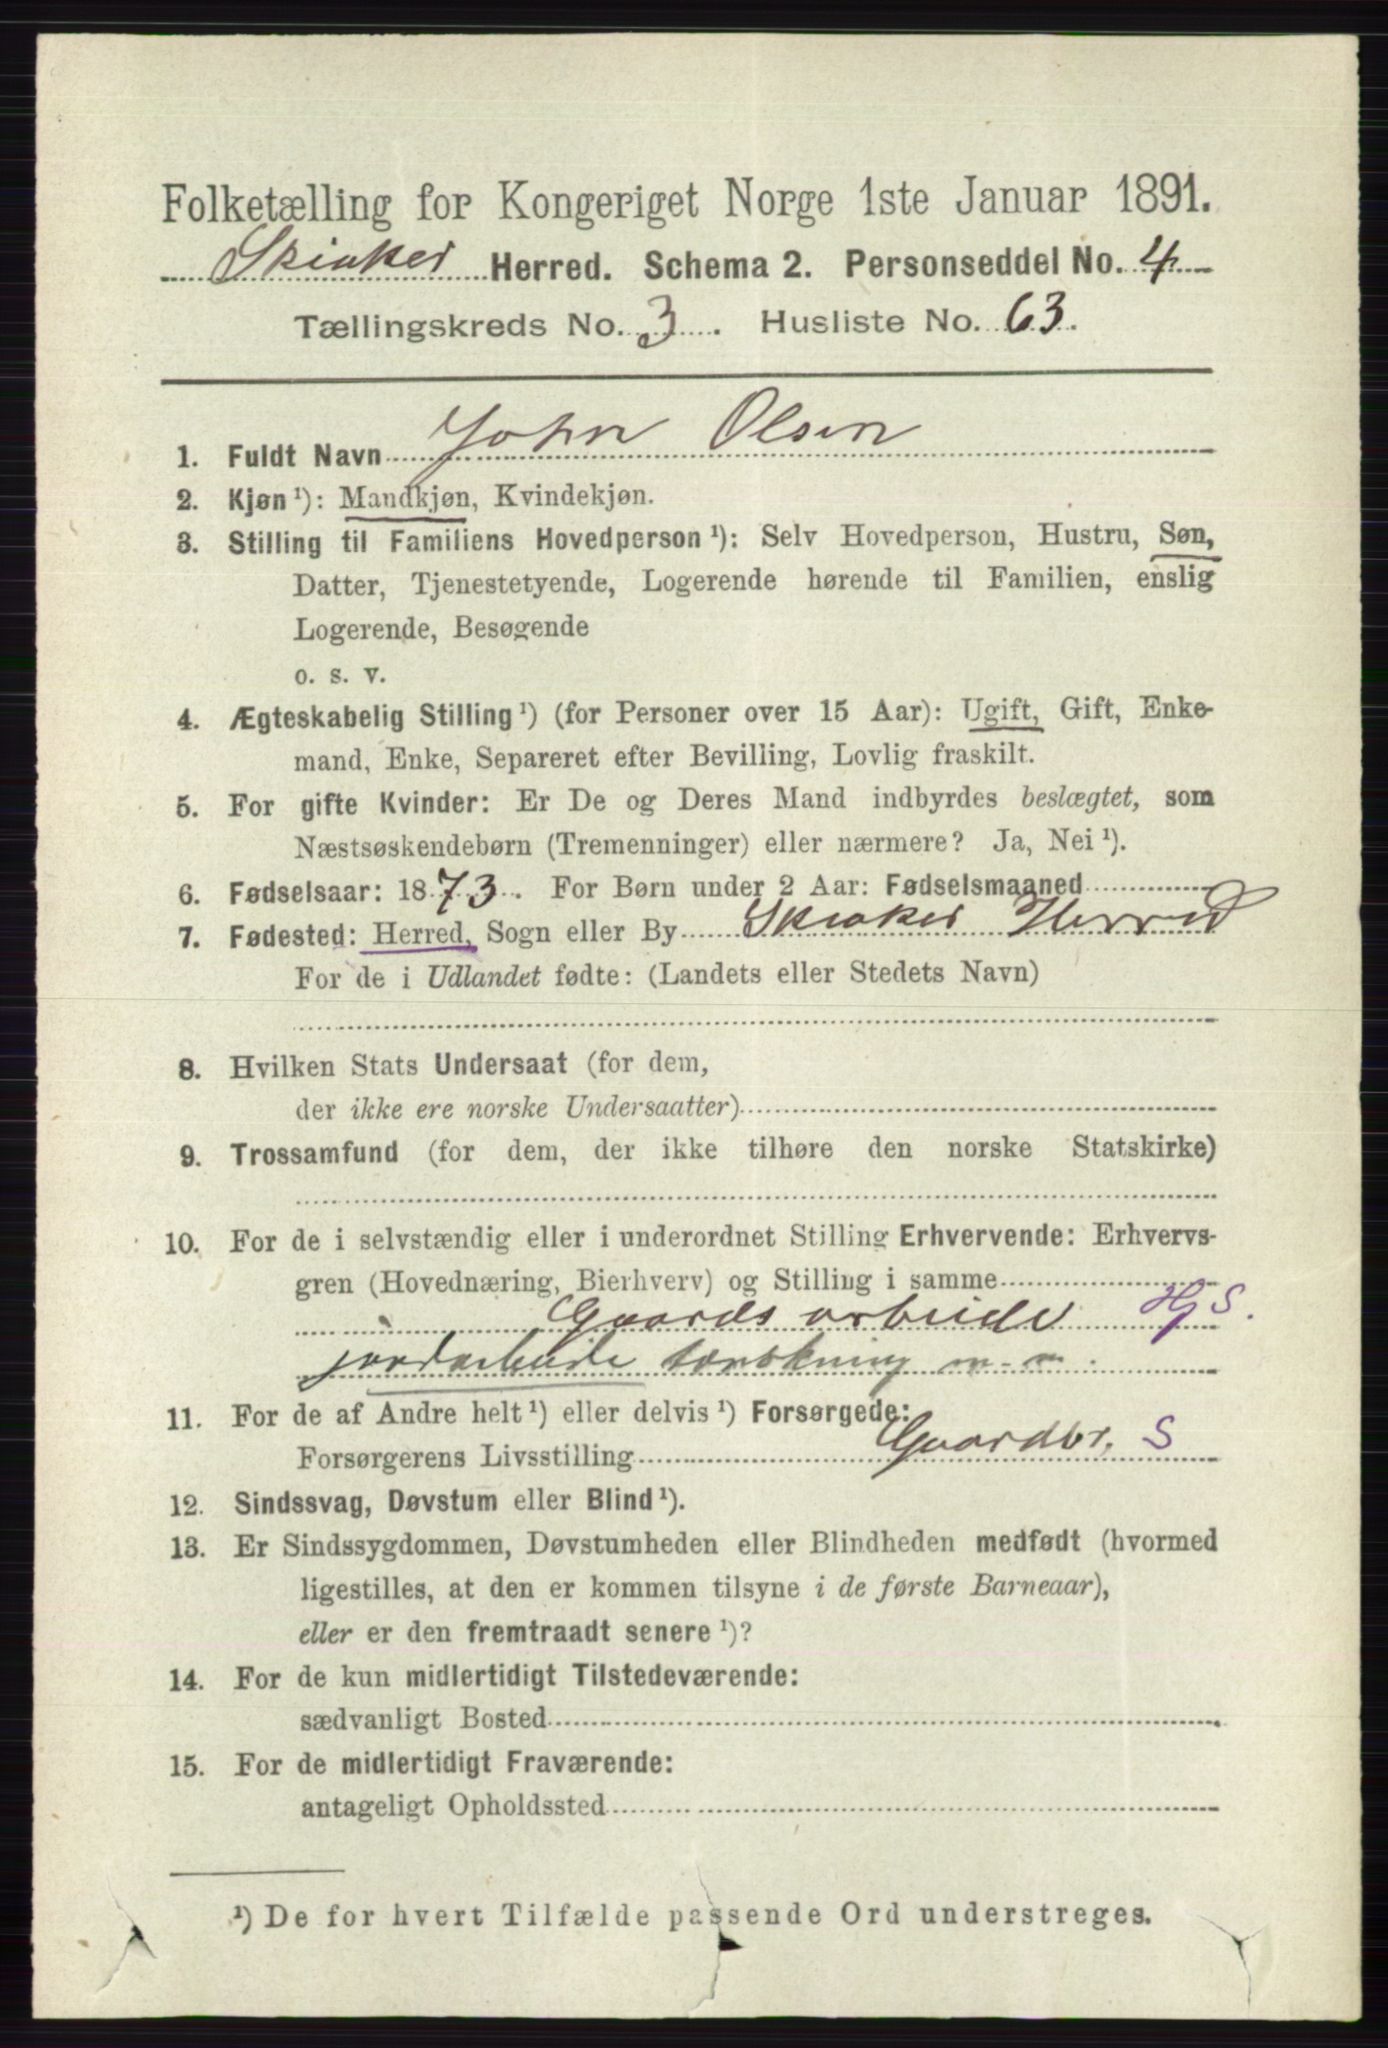 Folketælling for Kongeriget Norge 1ste Januar 1891.
Skiaker Herred. Schema 2. Personseddel No. 4
Tællingskreds No. 3. Husliste No. 63.
1. Fuldt Navn John Olsen
2. Kjøn ¹): Mandkjøn, Kvindekjøn.
3. Stilling til Familiens Hovedperson ¹): Selv Hovedperson, Hustru, Søn,
Datter, Tjenestetyende, Logerende hørende til Familien, enslig
Logerende, Besøgende
o. s. v.
4. Ægteskabelig Stilling ¹) (for Personer over 15 Aar): Ugift, Gift, Enke-
mand, Enke, Separeret efter Bevilling, Lovlig fraskilt.
5. For gifte Kvinder: Er De og Deres Mand indbyrdes beslægtet, som
Næstsøskendebørn (Tremenninger) eller nærmere? Ja, Nei ¹).
6. Fødselsaar: 1873. For Børn under 2 Aar: Fødselsmaaned
7. Fødested: Herred, Sogn eller By Skiaker Herred
For de i Udlandet fødte: (Landets eller Stedets Navn)
8. Hvilken Stats Undersaat (for dem,
der ikke ere norske Undersaatter)
9. Trossamfund (for dem, der ikke tilhøre den norske Statskirke)
10. For de i selvstændig eller i underordnet Stilling Erhvervende: Erhvervs-
gren (Hovednæring, Bierhverv) og Stilling i samme
Gaardsarbeide HjS.
jordarbeide tærskning m. m.
11. For de af Andre helt ¹) eller delvis ¹) Forsørgede:
Forsørgerens Livsstilling Gaardbr. S
12. Sindssvag, Døvstum eller Blind ¹).
13. Er Sindssygdommen, Døvstumheden eller Blindheden medfødt (hvormed
ligestilles, at den er kommen tilsyne i de første Barneaar),
eller er den fremtraadt senere ¹)?
14. For de kun midlertidigt Tilstedeværende:
sædvanligt Bosted
15. For de midlertidigt Fraværende:
antageligt Opholdssted
¹) De for hvert Tilfælde passende Ord understreges.